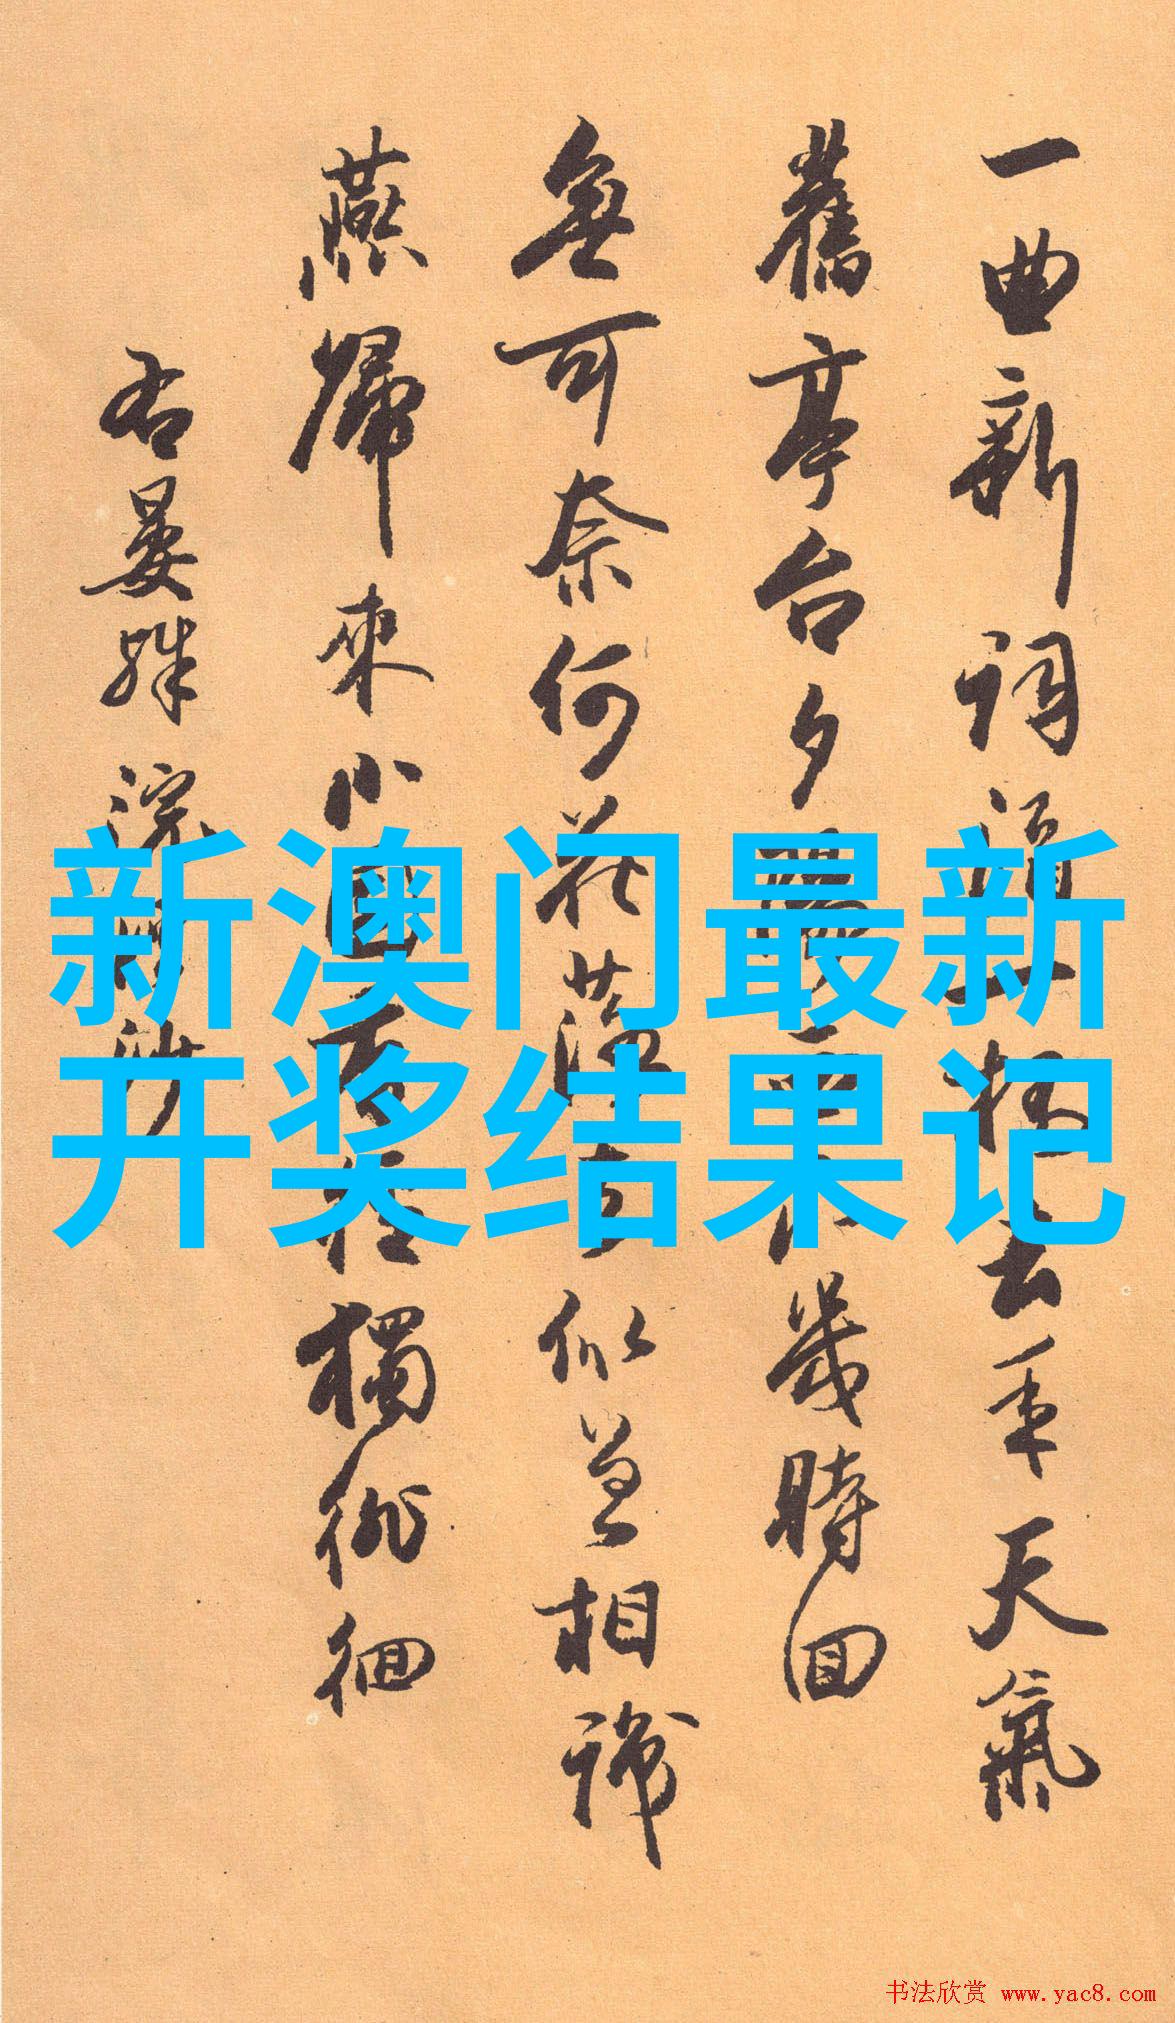 一曲新詞酒一杯去年天氣
舊亭台夕陽西下幾時回
無可奈何花落去似曾相識
燕歸來小園香徑獨徘徊
右晏殊浣溪沙
新澳门最新
开奖结果记
书法欣赏 www.yac8.com